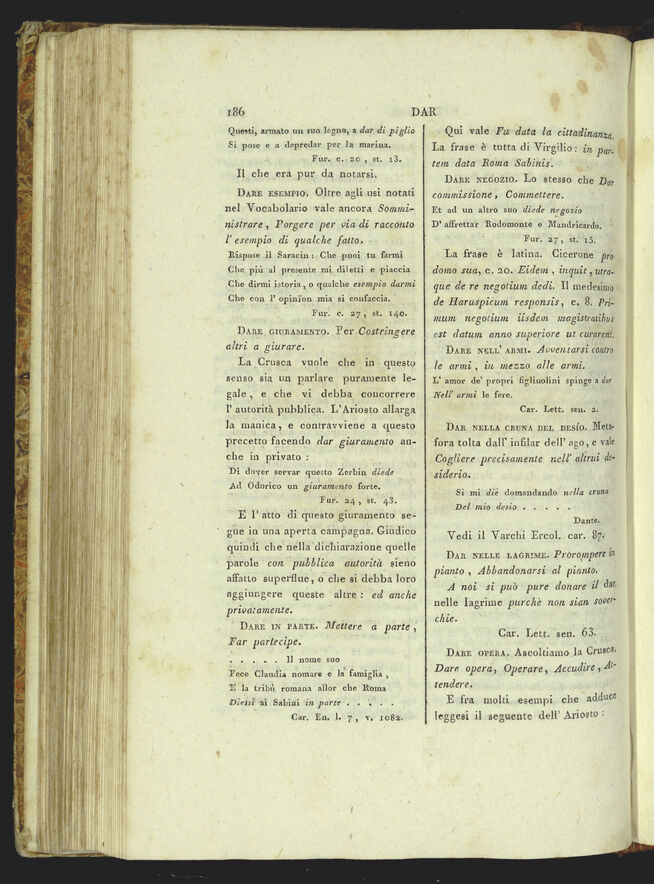 186
DAR
Questi, armato un suo legno, a dar di piglio
Si pose e a depredar per la marina.
Fur. c. 20, st. 13.
Il che era pur da notarsi.
DARE ESEMPIO. Oltre agli usi notati
nel Vocabolario vale ancora Sommi-
nistrare, Porgere per via di racconto
l' esempio di qualche fatto.
Rispose il Saracin: Che puoi tu farmi
Che più al presente mi diletti e piaccia
Che dirmi istoria, o qualche esempio darmi
Che con l' opinïon mia si confaccia.
Fur. c. 27, st. 140.
DARE GIURAMENTO. Per Costringere
altri a giurare.
La Crusca vuole che in questo
senso sia un parlare puramente le-
gale, e che vi debba concorrere
l' autorità pubblica. L'Ariosto allarga
la manica, e contravviene a questo
precetto facendo dar giuramento an-
che in privato :
Di dover servar questo Zerbin diede
Ad Odorico un giuramento forte.
Fur. 24, st. 43.
E l' atto di questo giuramento se-
gue in una aperta campagna. Giudico
quindi che nella dichiarazione quelle
parole con pubblica autorità sieno
affatto superflue, o che si debba loro
aggiungere queste altre : ed anche
privatamente.
DARE IN PARTE. Mettere a parte,
Far partecipe.
. . . . . Il nome suo
Feco Claudia nomare e la famiglia,
E la tribù romana allor che Roma
Diessi ai Sabini in parte . . . . .
Car. En. l. 7, v. 1082.
Qui vale Fu data la cittadinanza.
La frase è tutta di Virgilio : in par-
tem data Roma Sabinis.
DARE NEGOZIO. Lo stesso che Dar
commissione, Commettere.
Et ad un altro suo diede negozio
D' affrettar Rodomonte e Mandricardo.
Fur. 27, st. 15.
La frase è latina. Cicerone pro
domo sua, c. 20. Eidem, inquit, utra-
que de re negotium dedi. Il medesimo
de Haruspicum responsis, c. 8. Pri-
mum negotium iisdem magistratibus
est datum anno superiore ut curarent.
DARE NELL' ARMI. Avventarsi contro
le armi, in mezzo alle armi.
L' amor de' propri figliuolini spinge a dar
Nell' armi le fere.
Car. Lett. sen. 2.
DAR NELLA CRUNA DEL DESÍO. Meta-
fora tolta dall' infilar dell' ago, e vale
Cogliere precisamente nell' altrui de-
siderio.
Si mi diè domandando nella cruna
Del mio desio . . . . .
Dante.
Vedi il Varchi Ercol. car. 87.
DAR NELLE LAGRIME. Prorompere in
pianto, Abbandonarsi al pianto.
A noi si può pure donare il dar
nelle lagrime purchè non sian sover-
chie.
Car. Lett. sen. 63.
DARE OPERA. Ascoltiamo la Crusca.
Dare opera, Operare, Accudire, At-
tendere.
E fra molti esempi che adduce
leggesi il seguente dell' Ariosto :